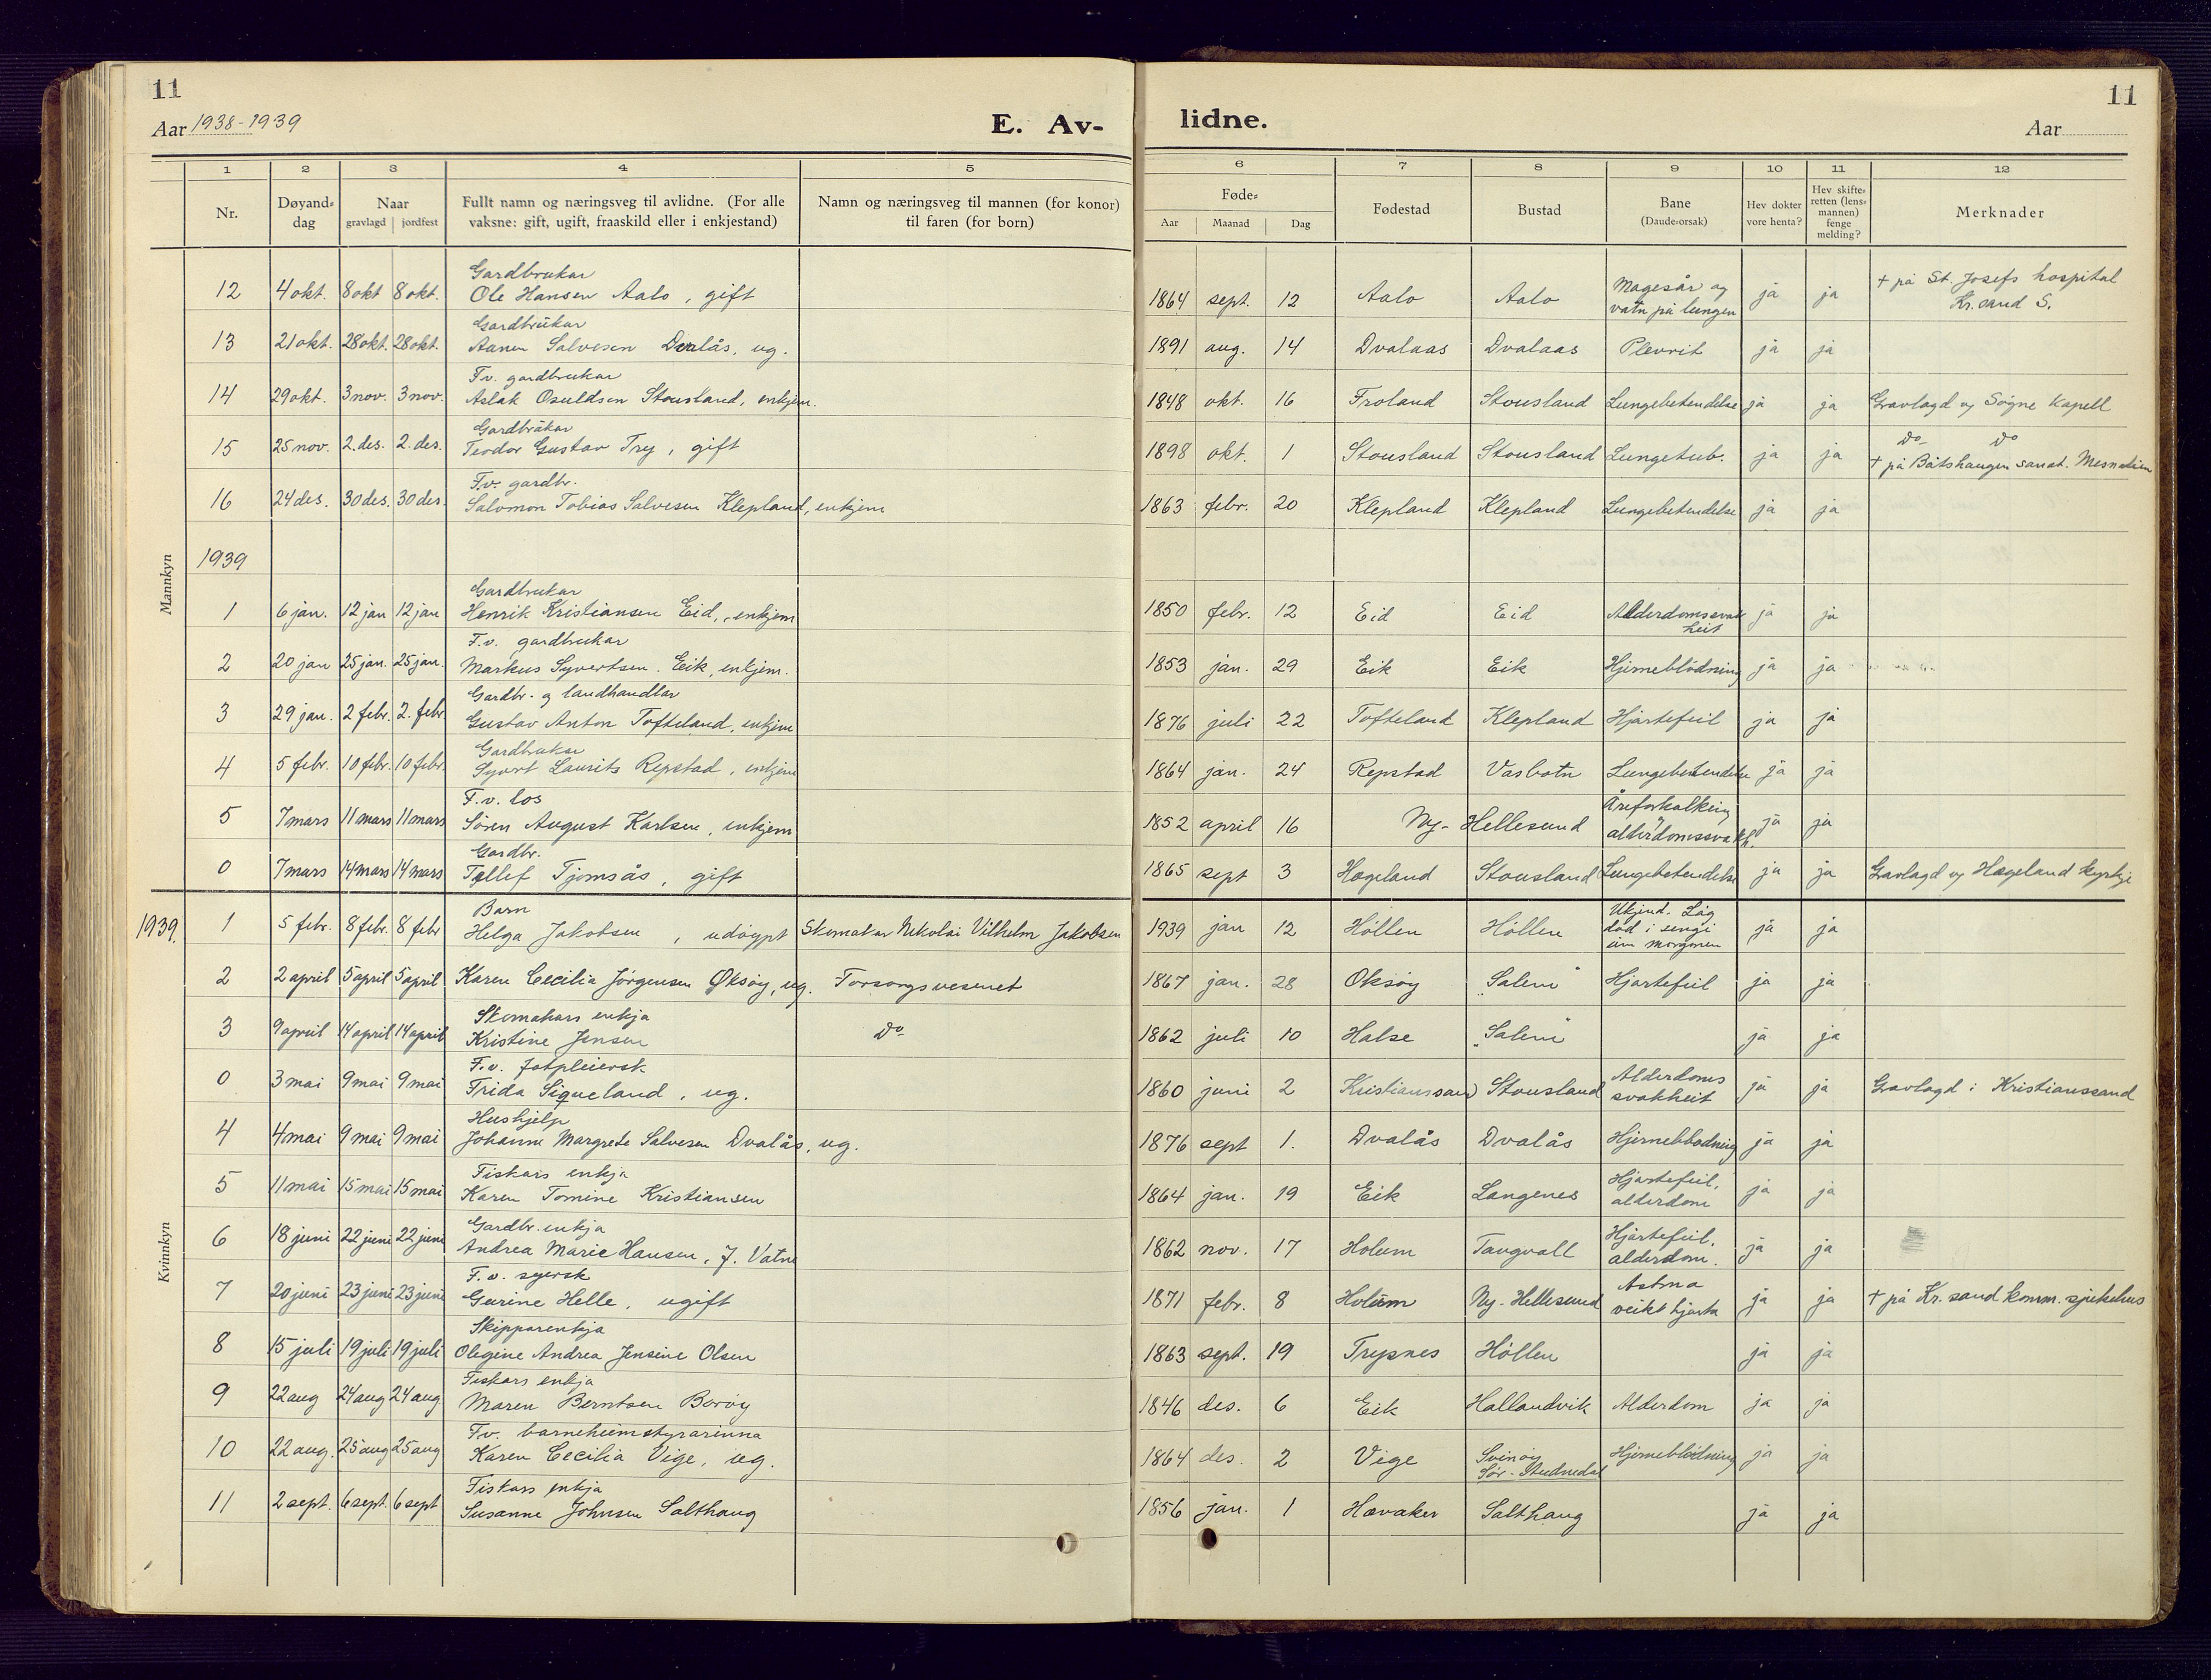 11
11
Aar 1938-1939
E. Av-
lidne.
Aar
1 2 3 4 5 6 7 8 9 10 11 12
Nr. Døyand-dag Naar gravlagd jordfest Fullt namn og næringsveg til avlidne. (For alle vaksne: gift, ugift, fraaskild eller i enkjestand) Namn og næringsveg til mannen (for konor) til faren (for born) Føde- Aar Maanad Dag Fødestad Bustad Bane (Daude-orsak) Hev dokter vore henta? Hev skifte-retten (lens-mannen) fenge melding? Merknader
Mannkyn
Gardbrukar
12 4 okt. 8 okt 8 okt. Ole Hansen Aalo, gift 1864 sept. 12 Aalo Aalo Magesår og vatn på lungen ja ja + på St. Josefs hospital Kr.sand S.
Gardbrukar
13 21 okt. 28 okt. 28 okt. Aanen Salvesen Dvalås, ug. 1891 aug. 14 Dvalaas Dvalaas Plevrit ja ja
Fv. gardbrukar
14 29 okt. 3 nov. 3 nov. Aslak Osuldsen Stousland, enkjem. 1848 okt. 16 Froland Stousland Lungebetendelse ja ja Gravlagd v Søgne Kapell
Gardbrukar
15 25 nov. 2. des. 2. des. Teodor Gustav Try, gift 1898 okt. 1 Stousland Stousland Lungetub. ja ja do do + på Båtshaugen sanat. Mesnalien
Fv. gardbr.
16 24 des. 30 des. 30 des Salomon Tobias Salvesen Klepland, enkjem 1863 febr. 20 Klepland Klepland Lungebetendelse ja ja
1939
Gardbrukar
1 6 jan. 12 jan 12 jan Henrik Kristiansen Eid, enkjem 1850 febr. 12 Eid Eid Alderdomssvakheit ja ja
F.v. gardbrukar
2 20 jan 25 jan. 25 jan. Markus Syvertsen Eik, enkjem. 1853 jan. 29 Eik Eik Hjerneblödning ja ja
Gardbr. og landhandlar
3 29 jan. 2 febr. 2. febr. Gustav Anton Tofteland, enkjem 1876 juli 22 Tofteland Klepland Hjartefeil ja ja
Gardbrukar
4 5 febr. 10 febr. 10 febr. Syvert Laurits Repstad, enkjem 1864 jan. 24 Repstad Vasbotn Lungebetendelse ja ja
F.v. los
5 7 mars 11 mars 11 mars Sören August Karlsen, enkjem 1852 april 16 Ny-Hellesund Åreforkalking og alderdomssvakh. ja ja
Gardbr.
0 7 mars 14 mars 14 mars Tellef Tjomsås, gift 1865 sept 3 Hægeland Stousland Lungebetendelse ja ja Gravlagd v Hægeland kyrkje
Kvinnkyn
1939.
Barn
1 5 febr. 8 febr. 8 febr Helga Jakobsen, udøypt Skomakar Nikolai Vilhelm Jakobsen 1939 jan 12 Höllen Höllen Ukjend. Låg död i sengi um morgonen ja ja
2 2 april 5 april 5 april Karen Cecilia Jörgensen Oksöy, ug. Forsorgsvesenet 1867 jan. 28 Oksöy "Salem" Hjartefeil ja ja
Skomakars enkja
3 9 april 14 april 14 april Kristine Jensen do 1862 juli 10 Halse "Salem" ja ja
F.v. fotpleiersk
0 3 mai 9 mai 9 mai Frida Siqueland, ug. 1860 juni 2 Kristianssand Stousland Alderdoms svakheit ja ja Gravlagd i Kristianssand
Hushjelp
4 4 mai 9 mai 9 mai Johanne Margrete Salvesen Dvalås, ug. 1876 sept 1. Dvalås Dvalås Hjerneblodning ja ja
Fiskars enkja
5 11 mai 15 mai 15 mai Karen Tomine Kristiansen 1864 jan. 19 Eik Langenes Hjartefeil, alderdom ja ja
Gardbr. enkja
6 18 juni 22 juni 22 juni Andrea Marie Hansen, f. Vatne 1862 nov. 17 Holum Tangvall Hjartefeil, alderdom. ja ja
F.v. syersk
7 20 juni 23 juni 23 juni Gurine Helle, ugift 1871 febr. 8 Holum Ny-Hellesund Astma veikt hjarta ja ja + på Kr.sand komm. sjukehus
Skipparenkja
8 15 juli 19 juli 19 juli Olegine Andrea Jensine Olsen 1863 sept. 19 Trysnes Höllen ja ja
Fiskars enkja
9 22 aug 24 aug 24 aug. Maren Berntsen Boröy 1846 des. 6 Eik Hallandvik Alderdom ja ja
Fv. barneheimstyrarinna
10 22 aug. 25 aug 25 aug Karen Cecilia Vige, ug. 1864 des. 2 Vige Svinöy Sør-Audnedal Hjerneblödning ja ja
Fiskars enkja
11 2 sept. 6 sept. 6 sept Susanne Johnsen Salthaug 1856 jan. 1 Havaker Salthaug ja ja